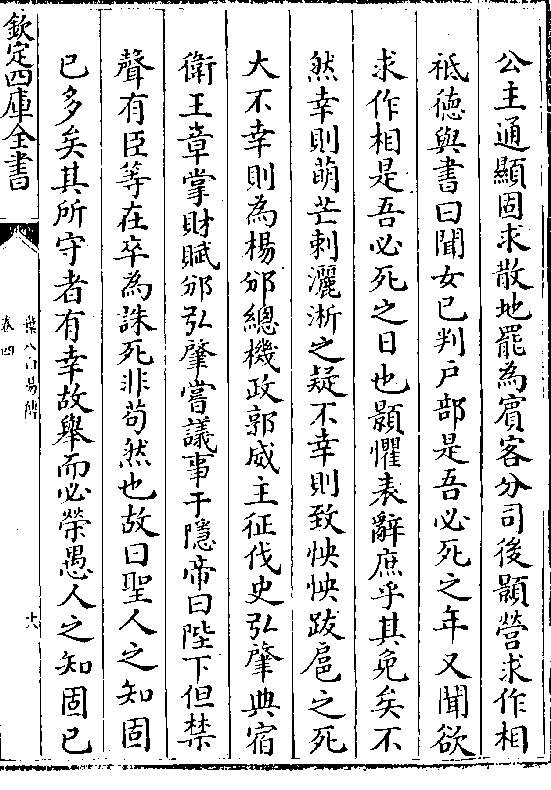 公主通顯固求散地罷為賓客分司後顥營求作相
祗德與書曰聞女已判戶部是吾必死之年又聞欲
求作相是吾必死之日也顥懼表辭庶乎其免矣不
然幸則萌芒刺灑淅之疑不幸則致怏怏跋扈之死
大不幸則為楊邠總機政郭威主征伐史弘肇典宿
衛王章掌財賦邠弘肇嘗議事于隱帝曰陛下但禁
聲有臣等在卒為誅死非苟然也故曰聖人之知固
已多矣其所守者有幸故舉而必榮愚人之知固已
欽定四庫全書
葉八白易傳
卷四
十八